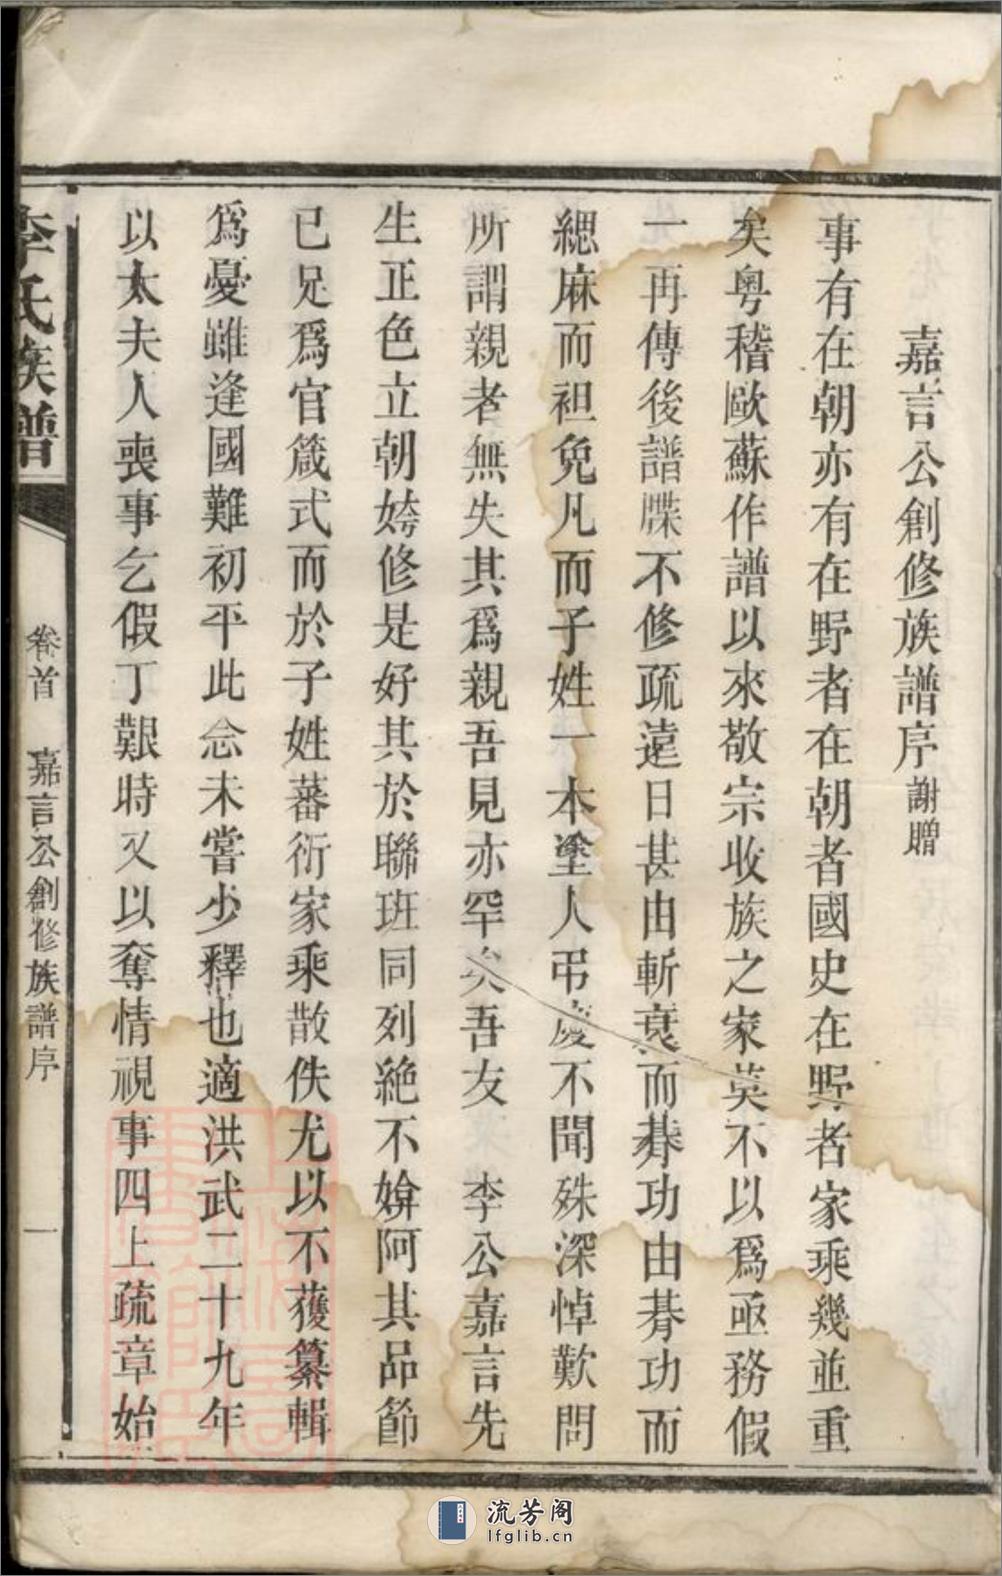 嘉言公創修族譜序謝贈
事有在朝亦有在野者在朝者國史在野者家乘幾並重
矣粵稽歐蘇作譜以來敬宗收族之家莫不以爲亟務假
一再傳後譜牒不修疏遠日甚由斬衰而朞功由朞功而
緦麻而袒免凡而子姓一本塗人弔慶不聞殊深悼歎問
所謂親者無失其爲親吾見亦罕矣吾友 李公嘉言先
生正色立朝姱修是好其於聯班同列絶不媕阿其品節
已足爲官箴式而於子姓蕃衍家乘散佚尤以不獲纂輯
爲憂雖逢國難初平此念未嘗少釋也適洪武二十九年
以太夫人喪事乞假丁艱時又以奪情視事四上疏章始
李氏族譜
卷首 嘉言公創修族譜序 一
流芳阁
lfglib.cn